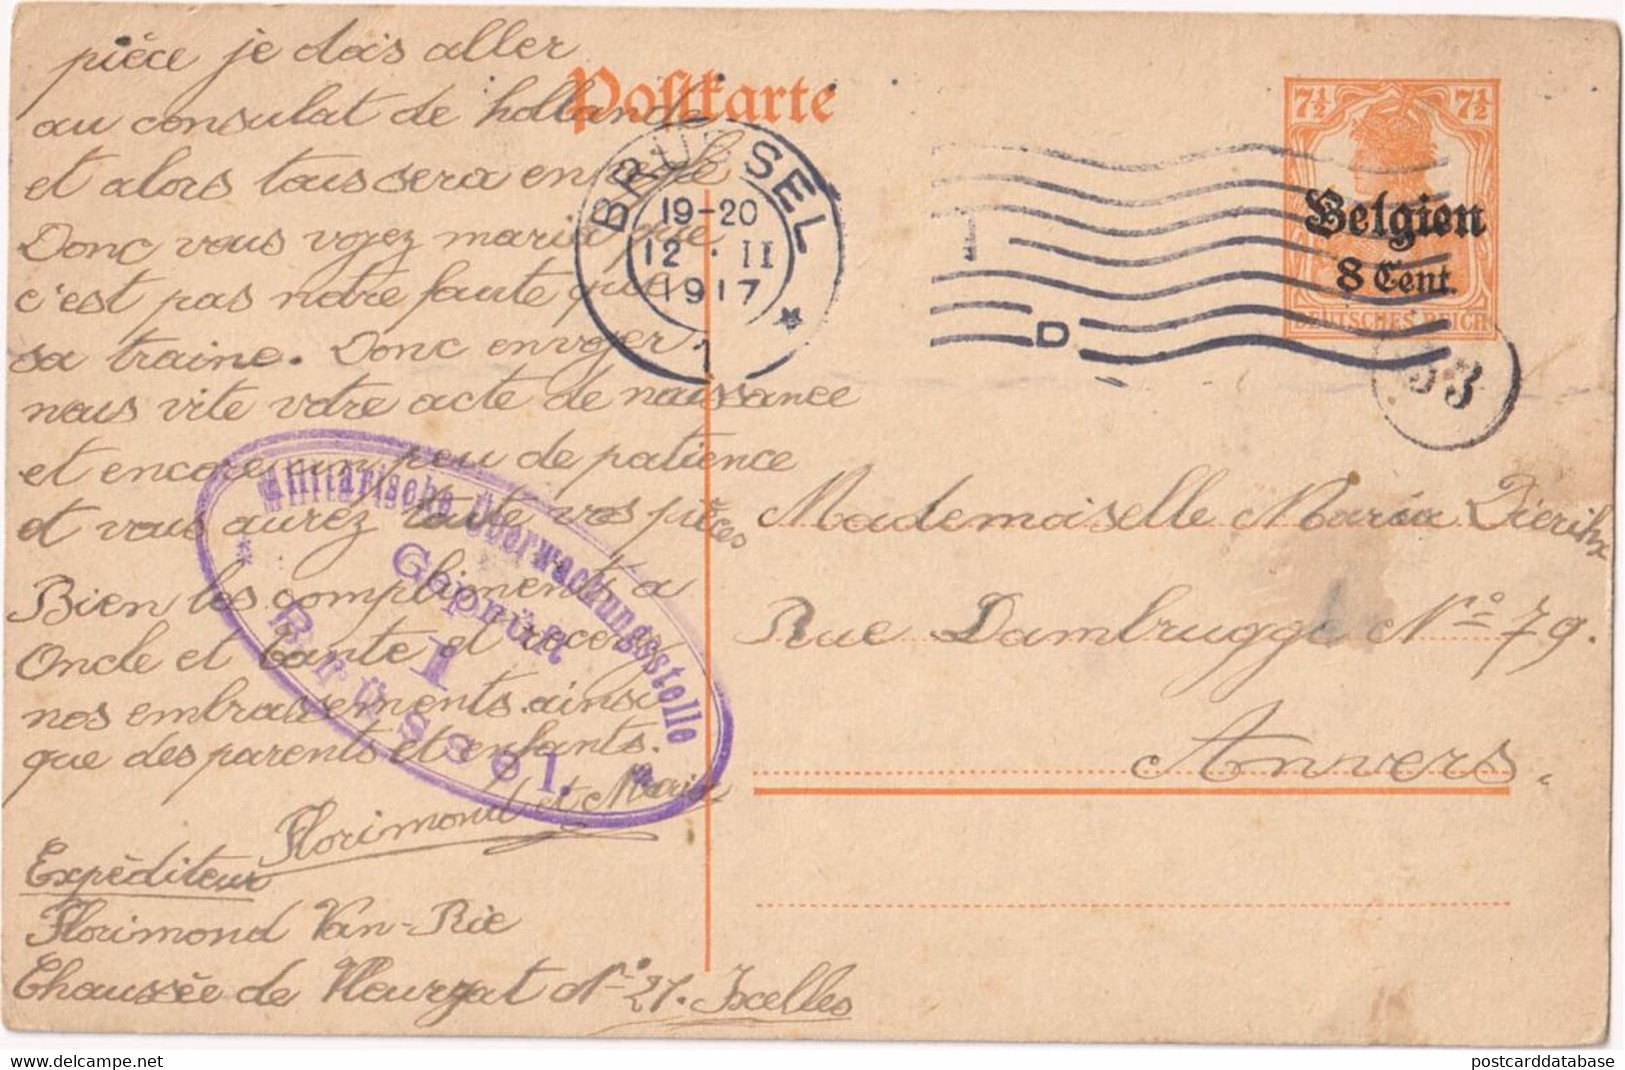 pièce je dois aller
au consulat de hollande
et alors tous sera en
Donc vous voyez maria que
c'est pas notre faute que
sa traine. Donc envoyer
nous vite votre acte de naissance
et encore un peu de patience
et vous aurez toute vos pièces
Bien les compliments a
Oncle et tante et recevez
nos embrassements ainsi
que des parents et enfants.
Florimond et Maria
Expéditeur
Florimond Van-Rie
Chaussée de Vleurgat No 27. Ixelles
Postkarte
BRÜSSEL
19-20
12 . II
1917
*
1
D
7½ 7½
Belgien
8 Cent.
DEUTSCHES REICH
Militärische Überwachungsstelle
Geprüft
I
Brüssel.
Mademoiselle Maria Dierikx
Rue Dambrugge No 79.
Anvers.
delcampe.net
postcarddatabase